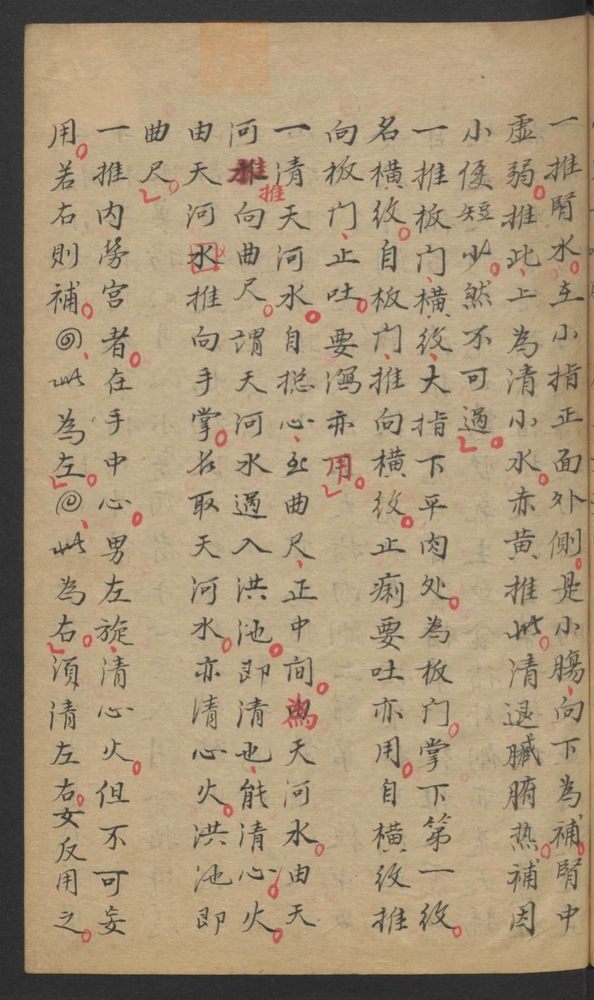 一推腎水。在小指正面外側。是小腸、向下為補。腎中
虛弱。推此、上為清小水。赤黄推此。清退臟腑热。補因
小便短少。然不可過。
一推板门、横纹、大指下平肉处。為板门。掌下第一纹。
名横纹。自板门、推向横纹。止痢要吐亦用。自横纹推
向板门、止吐。要瀉亦用。
一清天河水。自揔心、至曲尺、正中间。為天河水。由天
河推向曲尺。謂天河水過入洪池。即清也、能清心火。
由天河水推向手掌。名取天河水。亦清心火。洪池即
曲尺。
一推内勞宫者。在手中心。男左旋、清心火。但不可妄
用。若右則補。此為左。此為右。須清左右。女反用之。